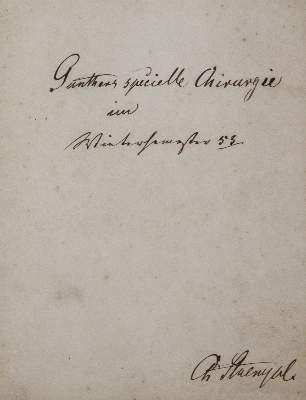 Günthers specielle Chirurgie
im
Wintersemester 53.
Ch.